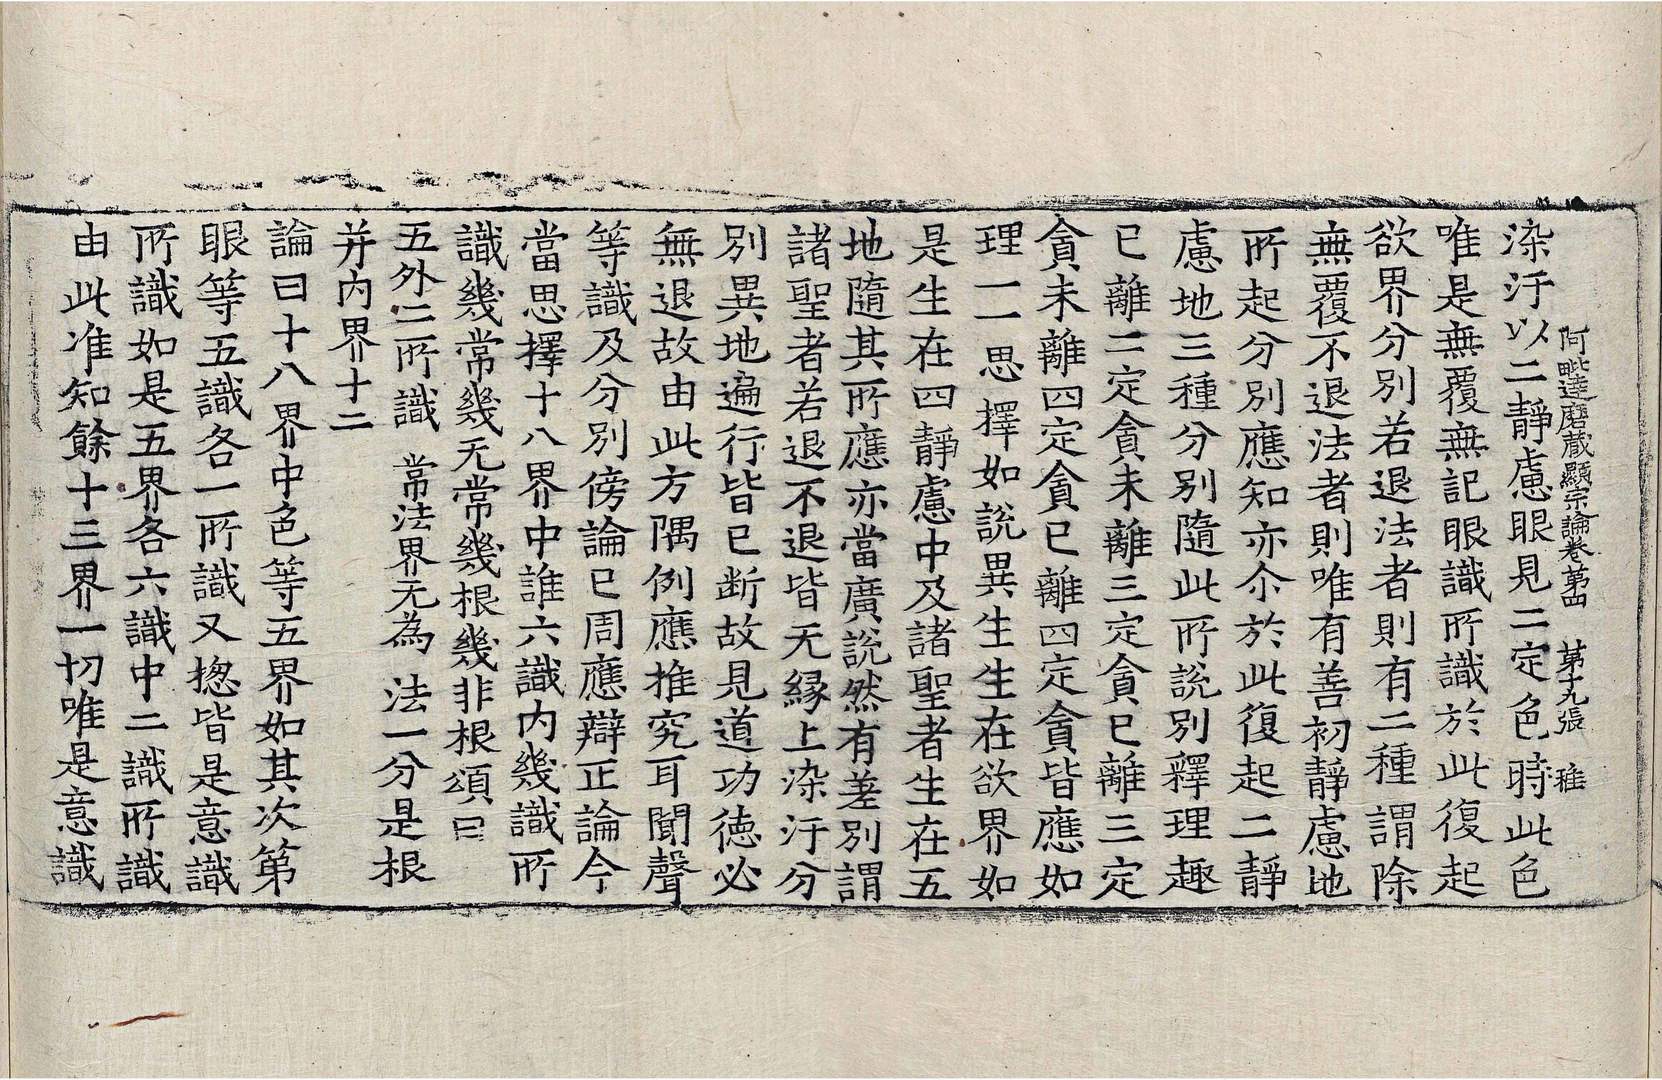 阿毗達磨藏顯宗論卷第四 第十九張 稚
染汙以二靜慮眼見二定色時此色
唯是無覆無記眼識所識於此復起
欲界分別若退法者則有二種謂除
無覆不退法者則唯有善初靜慮地
所起分別應知亦尒於此復起二靜
慮地三種分別隨此所說別釋理趣
已離二定貪未離三定貪已離三定
貪未離四定貪已離四定貪皆應如
理一一思擇如說異生生在欲界如
是生在四靜慮中及諸聖者生在五
地隨其所應亦當廣說然有差別謂
諸聖者若退不退皆无緣上染汙分
別異地遍行皆已断故見道功德必
無退故由此方隅例應推究耳聞聲
等識及分別傍論已周應辯正論今
當思擇十八界中誰六識内幾識所
識幾常幾无常幾根幾非根頌曰
五外二所識 常法界无為 法一分是根
并内界十二
論曰十八界中色等五界如其次第
眼等五識各一所識又揔皆是意識
所識如是五界各六識中二識所識
由此准知餘十三界一切唯是意識